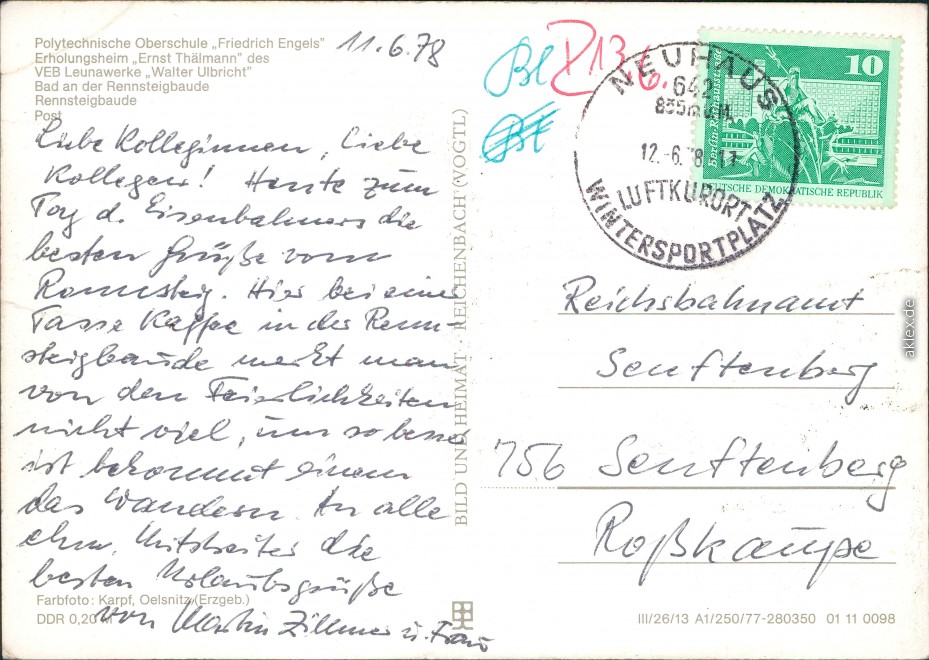 Polytechnische Oberschule „Friedrich Engels"
Erholungsheim „Ernst Thälmann" des
VEB Leunawerke „Walter Ulbricht"
Bad an der Rennsteigbaude
Rennsteigbaude
Post
11.6.78
Liebe Kolleginnen, Liebe
Kollegen! Heute zum
Tag d. Eisenbahners die
besten Grüße vom
Rennsteig. Hier bei einer
Tasse Kaffee in der Renn-
steigbaude merkt man
von den Feierlichkeiten
nicht viel, um so besser
ist bekommt einem
das Wandern. An alle
ehm. Mitstreiter die
besten Urlaubsgrüße
von Martin Zillmer u. Frau
Farbfoto: Karpf, Oelsnitz (Erzgeb.)
DDR 0,20 M
BILD UND HEIMAT · REICHENBACH (VOGTL)
Bl 13.6.
Bl
NEUHAUS
642
835m ü.M.
12.-6.78-17
LUFTKURORT
WINTERSPORTPLATZ
10
DEUTSCHE DEMOKRATISCHE REPUBLIK
Reichsbahnamt
Senftenberg
756 Senftenberg
Roßkaupe
III/26/13 A1/250/77-280350 01 11 0098
aklex.de